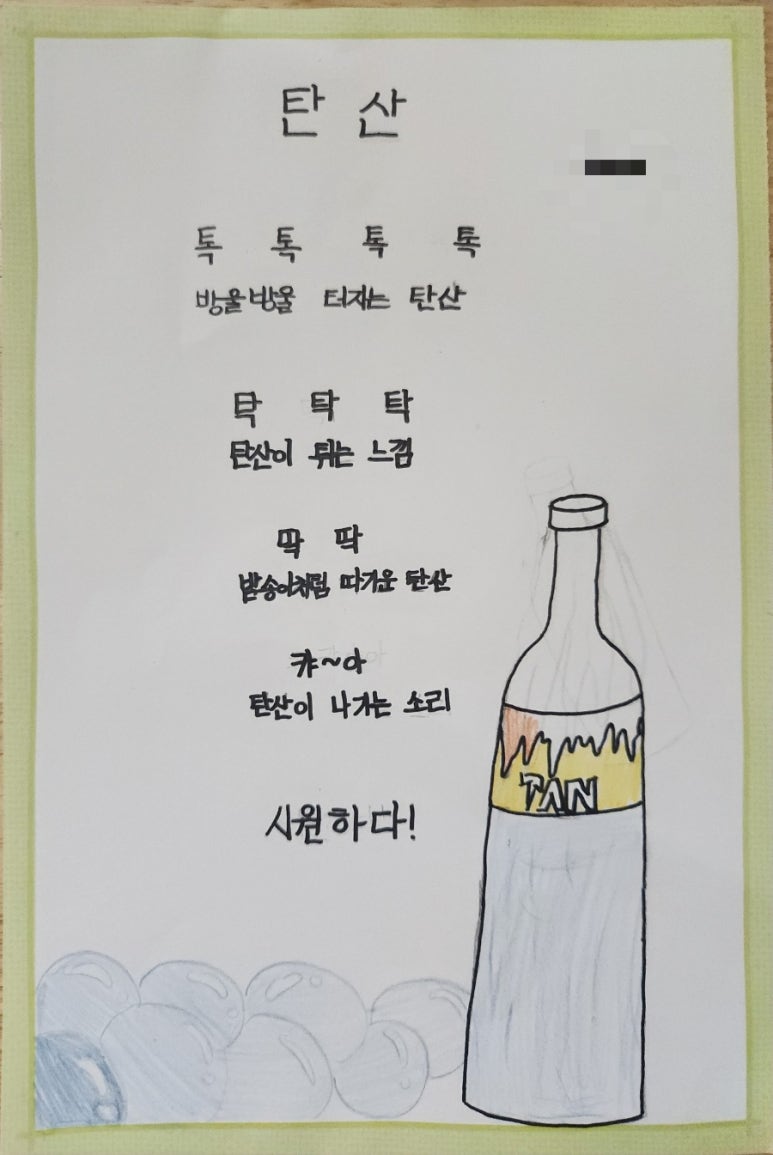 탄 산
톡 톡 톡 톡
방울방울 터지는 탄산
탁 탁 탁
탄산이 튀는 느낌
딱 딱
밤송이처럼 따가운 탄산
캬~아
탄산이 나가는 소리
시원하다!
TAN